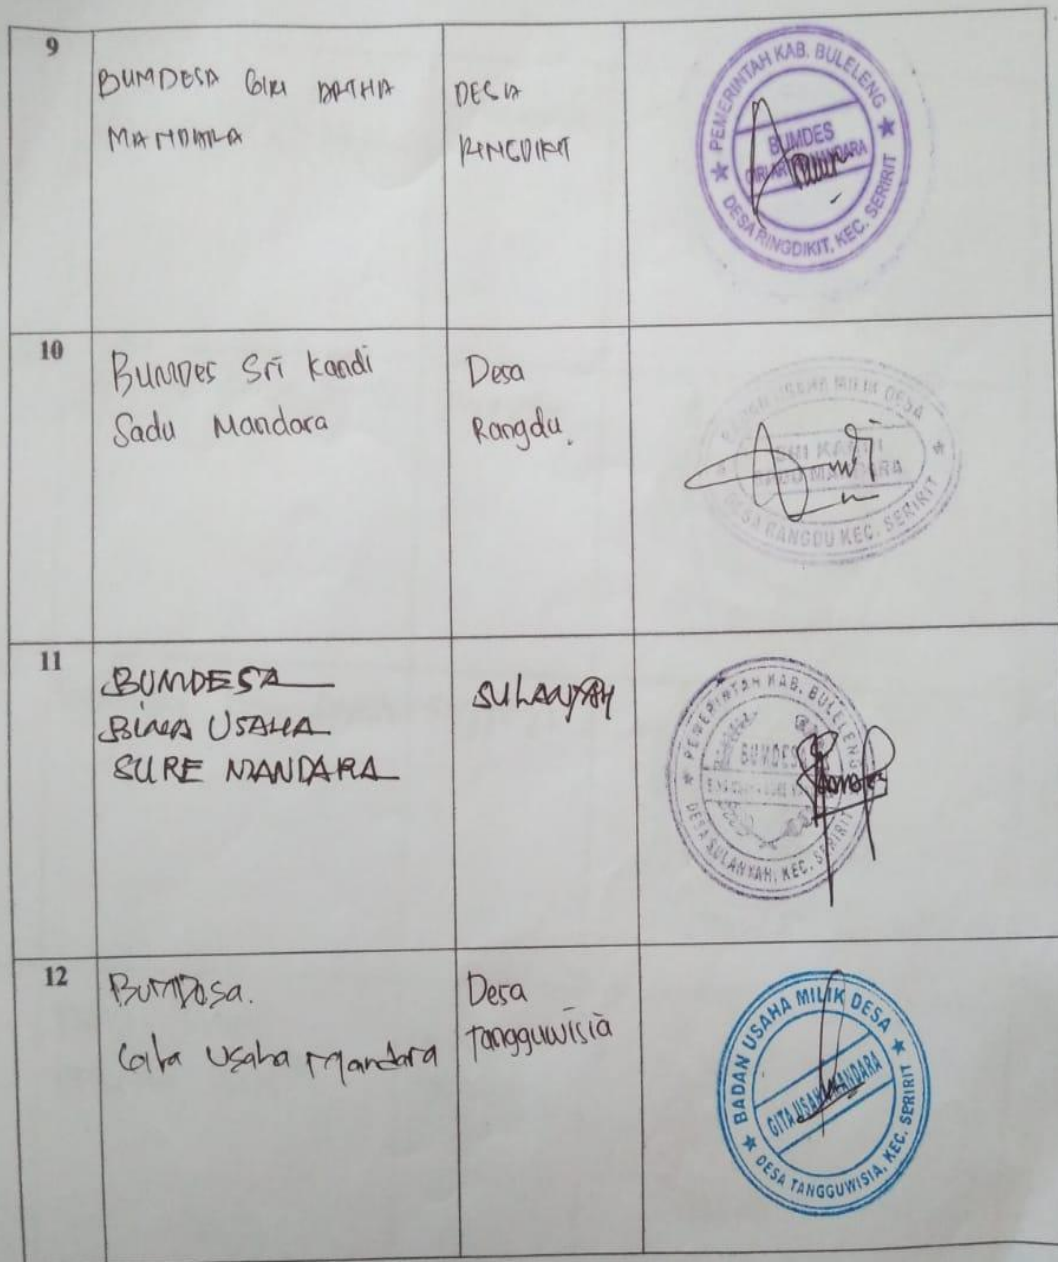 9
BUMDESA GIRI ARTHA
MANDARA
DESA
RINGDIKIT
PEMERINTAH KAB. BULELENG
BUMDES
GIRI ARTHA MANDARA
DESA RINGDIKIT, KEC. SERIRIT
10
BUMDes Sri Kandi
Sadu Mandara
Desa
Rangdu.
BADAN USAHA MILIK DESA
SRI KANDI
SADU MANDARA
DESA RANGDU KEC. SERIRIT
11
BUMDESA
BINA USAHA
SURE MANDARA
SULANYAH
PEMERINTAH KAB. BULELENG
BUMDES
DESA SULANYAH, KEC. SERIRIT
12
BUMDesa.
Gita Usaha Mandara
Desa
Tangguwisia
BADAN USAHA MILIK DESA
GITA USAHA MANDARA
DESA TANGGUWISIA, KEC. SERIRIT